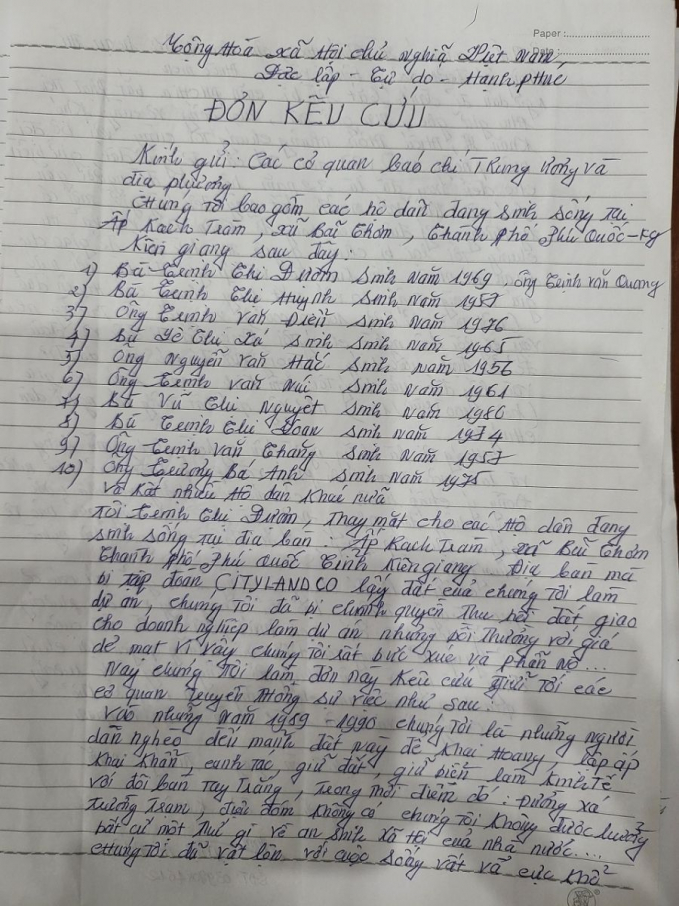 Paper :
Date :
Cộng Hoà xã Hội chủ nghĩa Việt Nam
Độc lập - Tự do - Hạnh phúc
ĐƠN KÊU CỨU
Kính gửi: Các cơ quan báo chí Trung ương và
địa phương
Chúng tôi bao gồm các hộ dân đang sinh sống tại
Ấp Rạch Tràm, xã Bãi Thơm, Thành phố Phú Quốc - Kg
Kiên giang sau đây:
1) Bà Trịnh Thị Đượm sinh năm 1969. ông Trịnh văn Quang
2) Bà Trịnh Thị Huỳnh Sinh Năm 1957
3) Ông Trịnh văn Điền sinh năm 1976
4) Bà Lê Thị Xá sinh Năm 1965
5) Ông Nguyễn văn Hắc sinh năm 1956
6) Ông Trịnh văn Núi sinh Năm 1961
7) Bà Vũ Thị Nguyệt sinh Năm 1980
8) Bà Trịnh Thị Đoan sinh năm 1974
9) Ông Trịnh văn Thắng sinh Năm 1957
10) Ông Trương Bá Anh sinh năm 1975
và Rất nhiều Hộ dân khác nữa
Tôi Trịnh Thị Đượm, Thay mặt cho các Hộ dân đang
sinh sống tại địa bàn: Ấp Rạch Tràm, xã Bãi Thơm
Thành phố Phú Quốc Tỉnh Kiên giang. Địa bàn mà
bị tập đoàn CITYLANDCO lấy đất của chúng tôi làm
dự án, chúng tôi đã bị chính quyền Thu hồi đất giao
cho doanh nghiệp làm dự án nhưng bồi Thường với giá
dẻ mạt vì vậy chúng Tôi rất bức xúc và phẫn nộ...
Nay chúng Tôi làm đơn này Kêu cứu gửi tới các
cơ quan Truyền thông sự việc như sau:
Vào những Năm 1989 - 1990 chúng Tôi là những người
dân nghèo đến mảnh đất này để Khai Hoang, lập ấp
Khai khẩn, canh tác, giữ đất, giữ biển làm kinh Tế
với đôi bàn Tay Trắng, Trong thời điểm đó: Đường xá
Trường Trạm, điện đóm Không có chúng Tôi Không được hưởng
bất cứ một Thứ gì về an sinh xã Hội của nhà nước...
Chúng Tôi đã vật lộn với cuộc sống vất vả cực Khổ